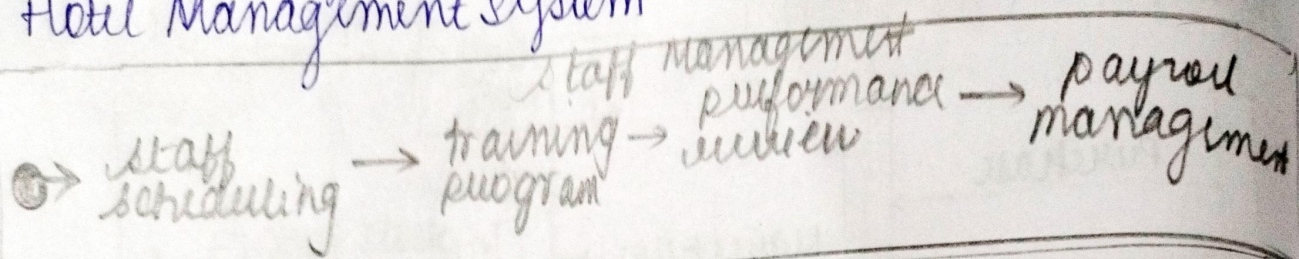 Hotel Management System
Staff Management
staff scheduling → training program → performance review → payroll management